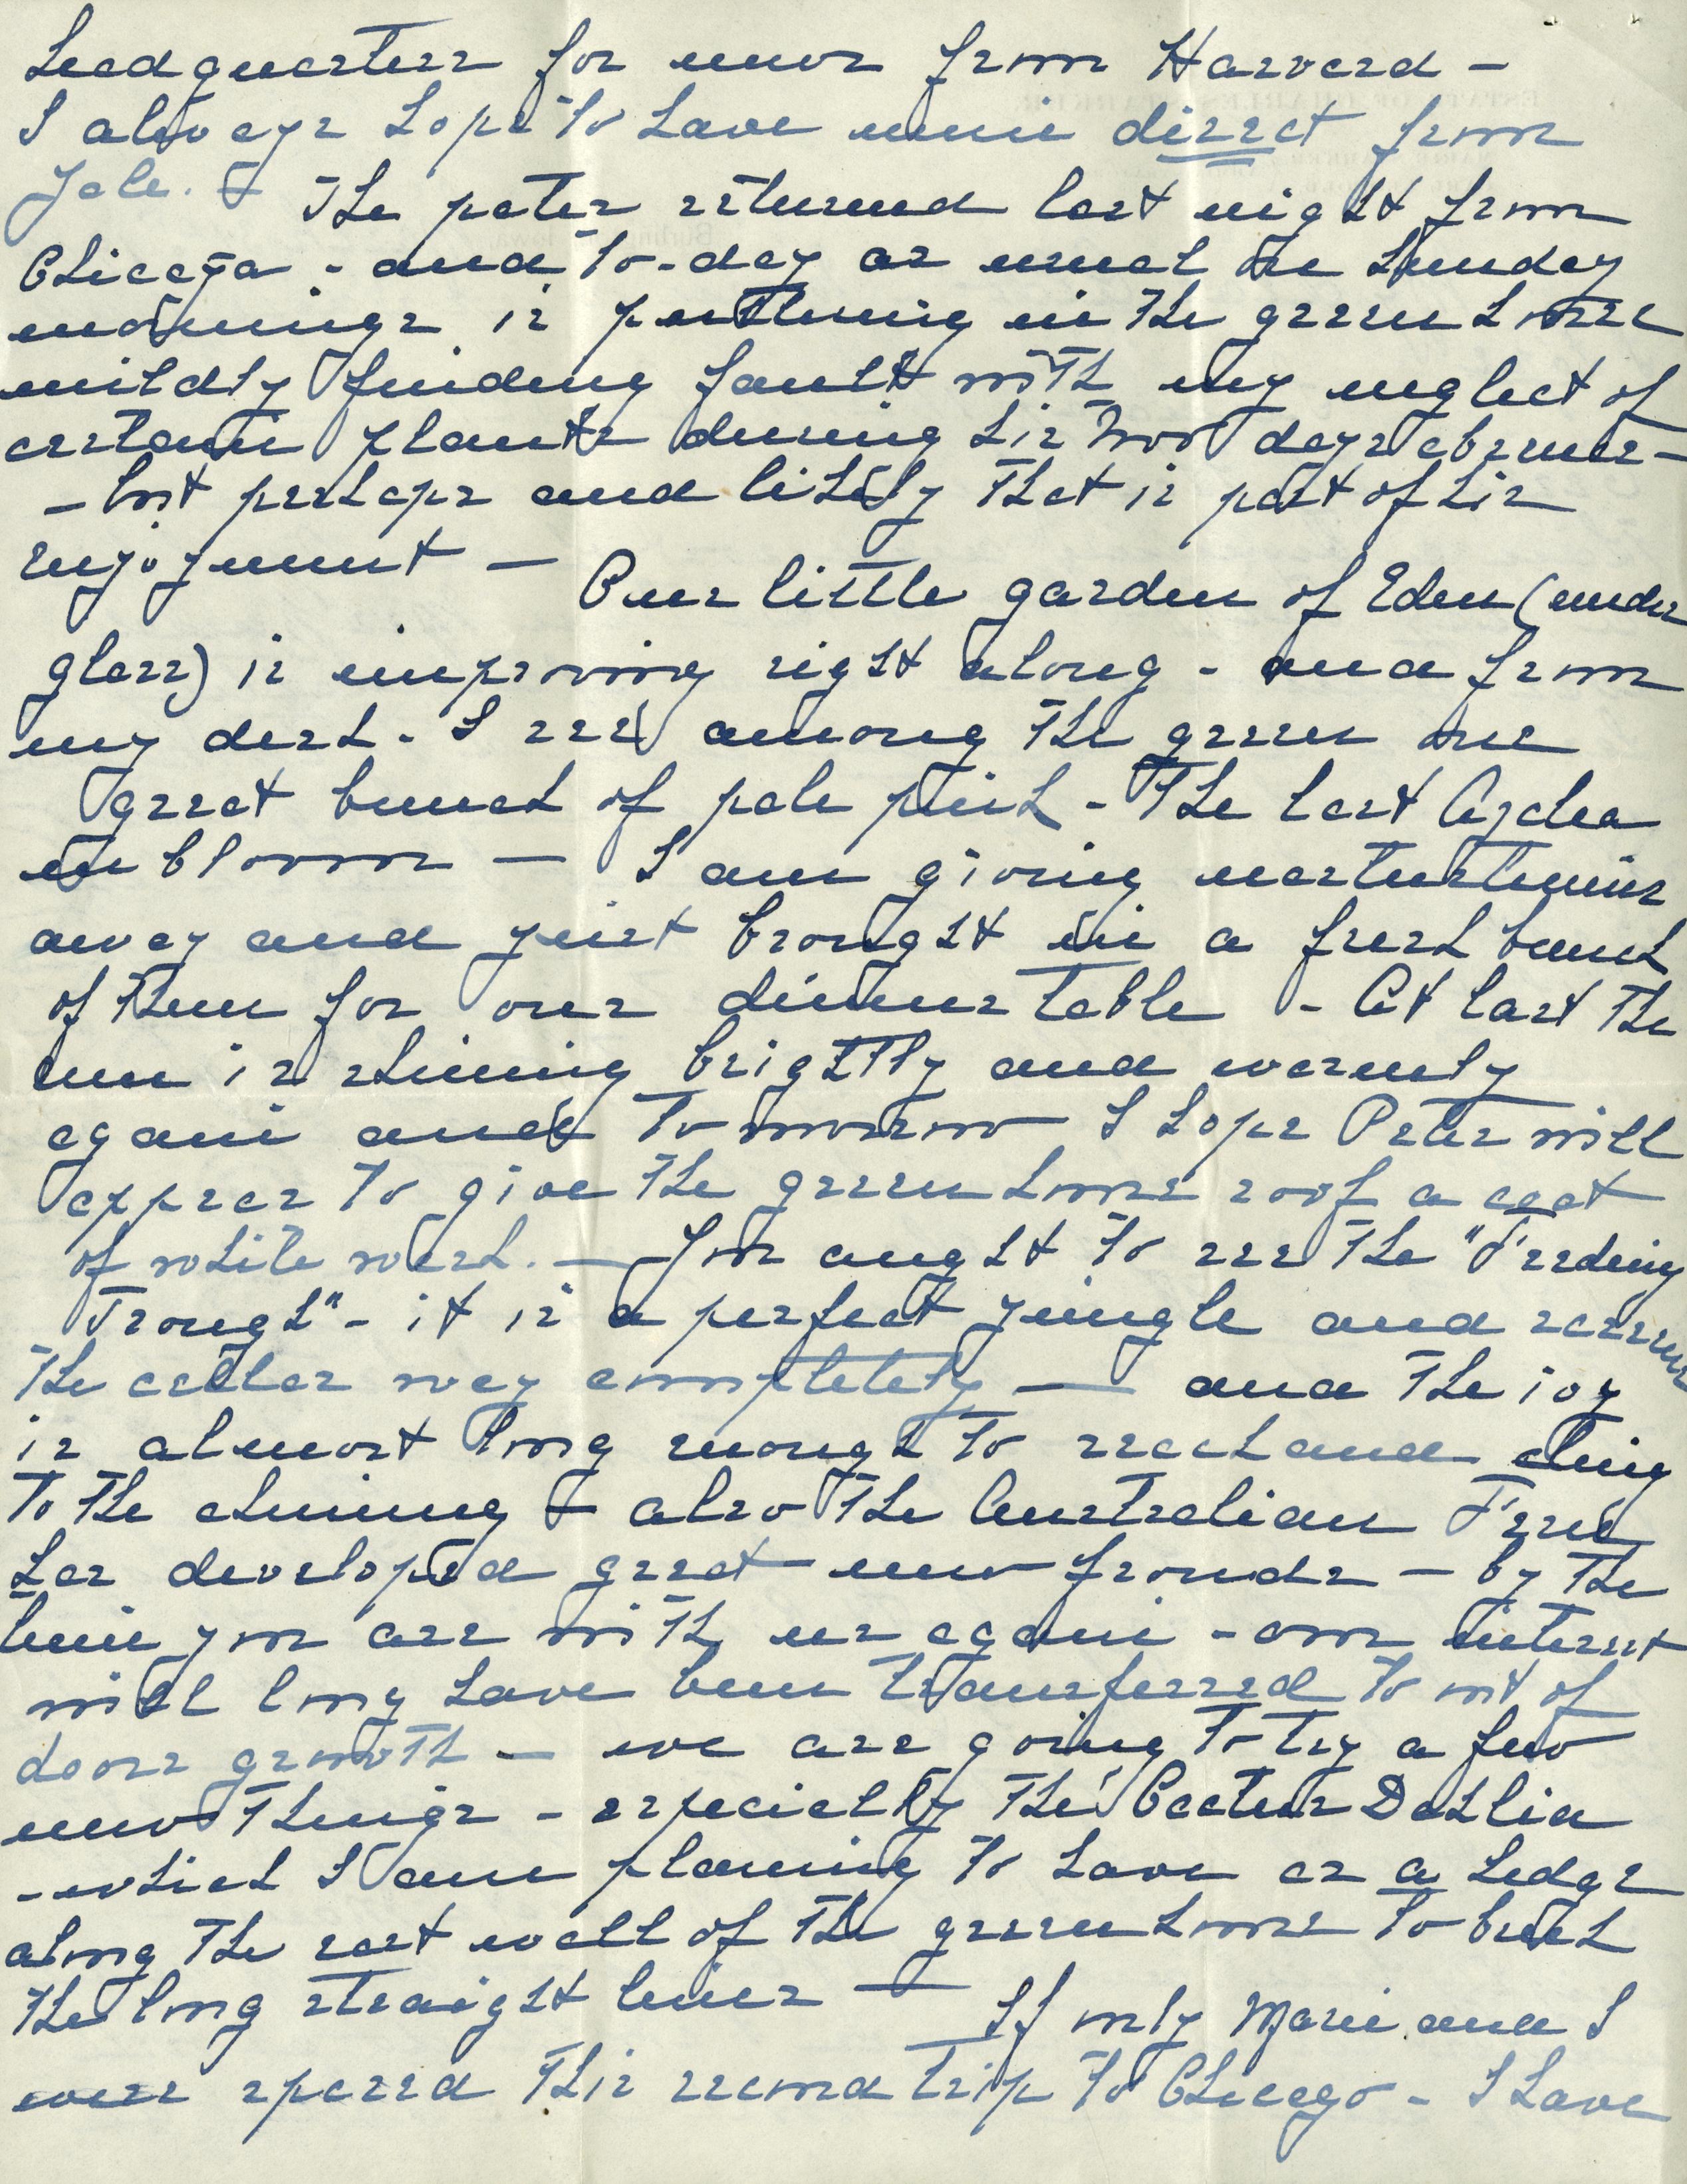 headquarters for news from Harvard –
I always hope to have mine direct from
Yale. – The pater returned last night from
Chicago – and to-day as usual on Sunday
mornings is puttering in the greenhouse
mildly finding fault with my neglect of
certain plants during his two days absence –
– but perhaps and likely that is part of his
enjoyment – Our little garden of Eden (under
glass) is improving right along – and from
my desk – I see among the green one
great bunch of pale pink – The last Azalea
in bloom – I am giving nasturtiums
away and just brought in a fresh bunch
of them for our dinner table – At last the
sun is shining brightly and warmly
again and tomorrow I hope Peter will
appear to give the greenhouse roof a coat
of white wash. – You ought to see the "Feeding
Trough" – it is a perfect jungle and screens
the cellar way completely – and the ivy
is almost long enough to reach and cling
to the chimney – also the Australian Fern
has developed great new fronds – by the
time you are with us again – our interest
will long have been transferred to out of
doors growth – we are going to try a few
new things – especially the Cactus Dahlia
– which I am planning to have as a hedge
along the east wall of the greenhouse to break
the long straight lines – If only Marie and I
were spared this second trip to Chicago – I have